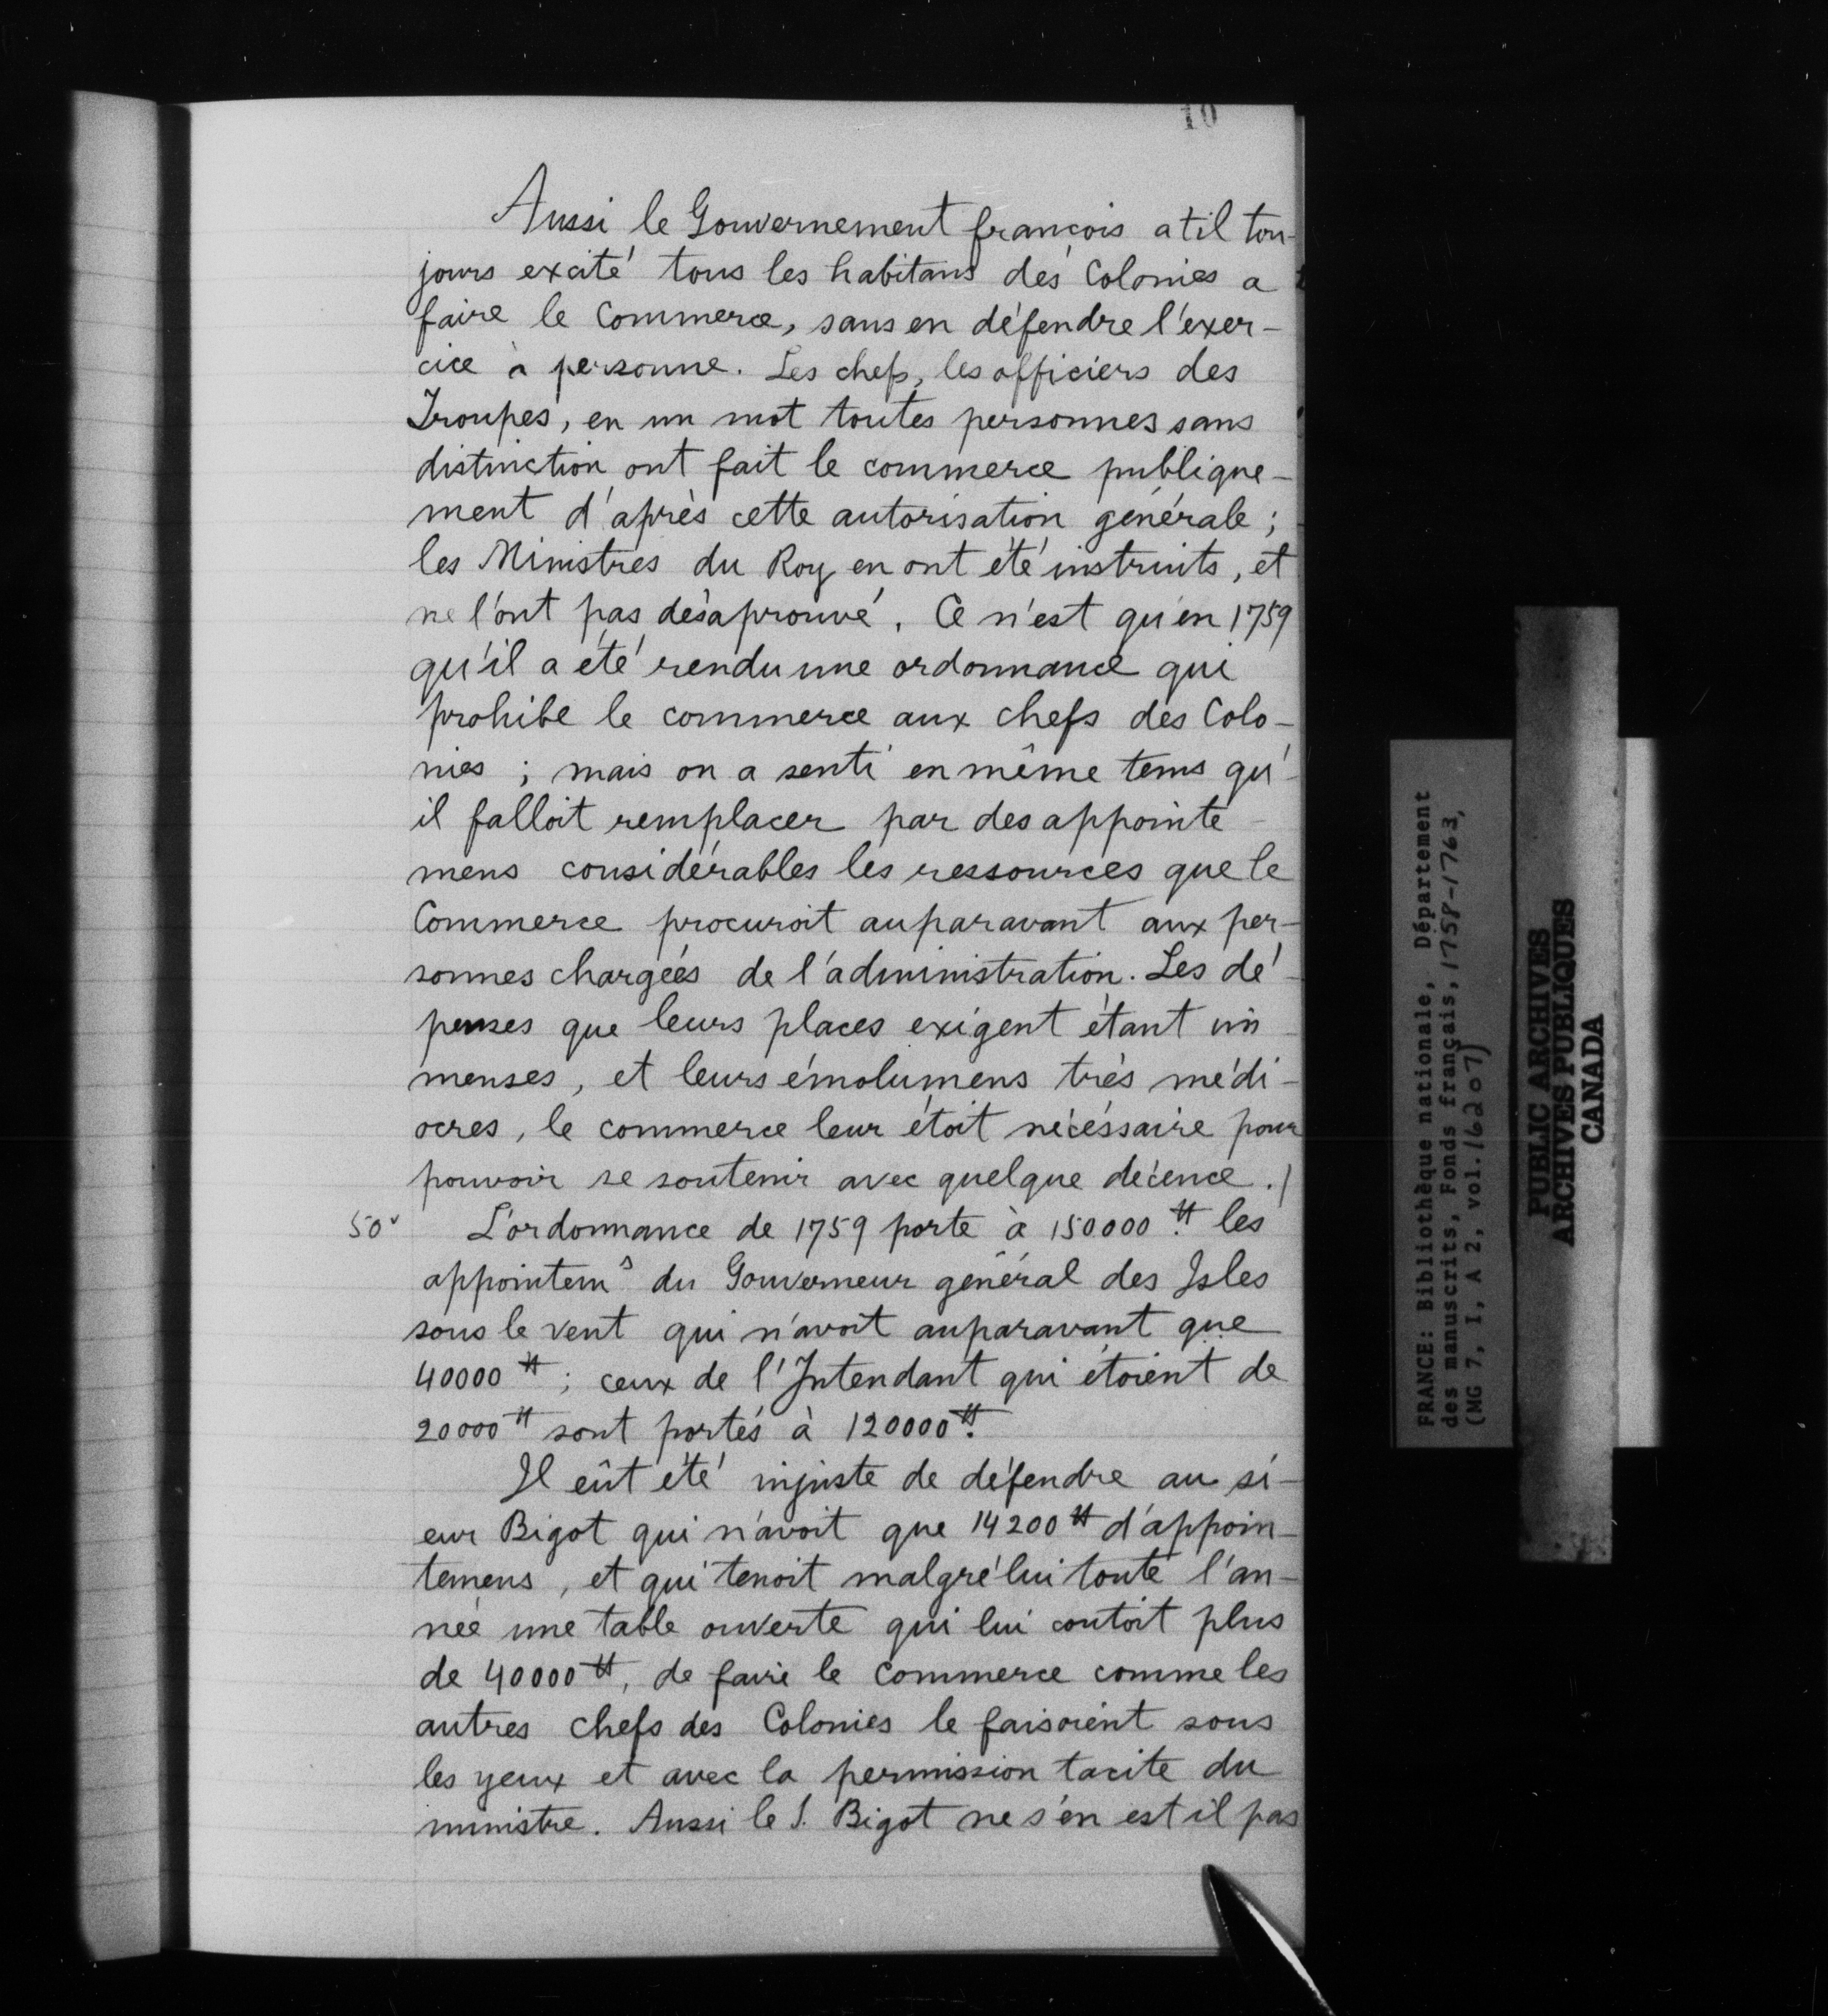 10
Aussi le Gouvernement françois a til tou-
jours excité tous les habitans des Colonies a
faire le Commerce, sans en défendre l'exer-
cice à personne. Les chefs, les officiers des
Troupes, en un mot toutes personnes sans
distinction ont fait le commerce publique-
ment d'après cette autorisation générale;
les Ministres du Roy en ont été instruits, et
ne l'ont pas désaprouvé. Ce n'est qu'en 1759
qu'il a été rendu une ordonnance qui
prohibe le commerce aux chefs des Colo-
nies; mais on a senti en même tems qu'-
il falloit remplacer par des appointe-
mens considérables les ressources que le
Commerce procuroit auparavant aux per-
sonnes chargées de l'administration. Les dé-
penses que leurs places exigent étant im
menses, et leurs émolumens très médi-
ocres, le commerce leur étoit nécéssaire pour
pouvoir se soutenir avec quelque décence./
50v L'ordonnance de 1759 porte à 150000 ₶ les
appointem^s du Gouverneur général des Isles
sous le vent qui n'avoit auparavant que
40000 ₶; ceux de l'Intendant qui étoient de
20000 ₶ sont portés à 120000 ₶.
Il eût été injuste de défendre au si-
eur Bigot qui n'avoit que 14200 ₶ d'appoin-
temens, et qui tenoit malgré lui toute l'an-
née une table ouverte qui lui coutoit plus
de 40000 ₶, de faire le Commerce comme les
autres chefs des Colonies le faisoient sous
les yeux et avec la permission tacite du
ministre. Aussi le S. Bigot ne s'en est il pas
FRANCE: Bibliothèque nationale, Département
des manuscrits, Fonds français, 1758-1763,
(MG 7, I, A 2, vol. 16207)
PUBLIC ARCHIVES
ARCHIVES PUBLIQUES
CANADA